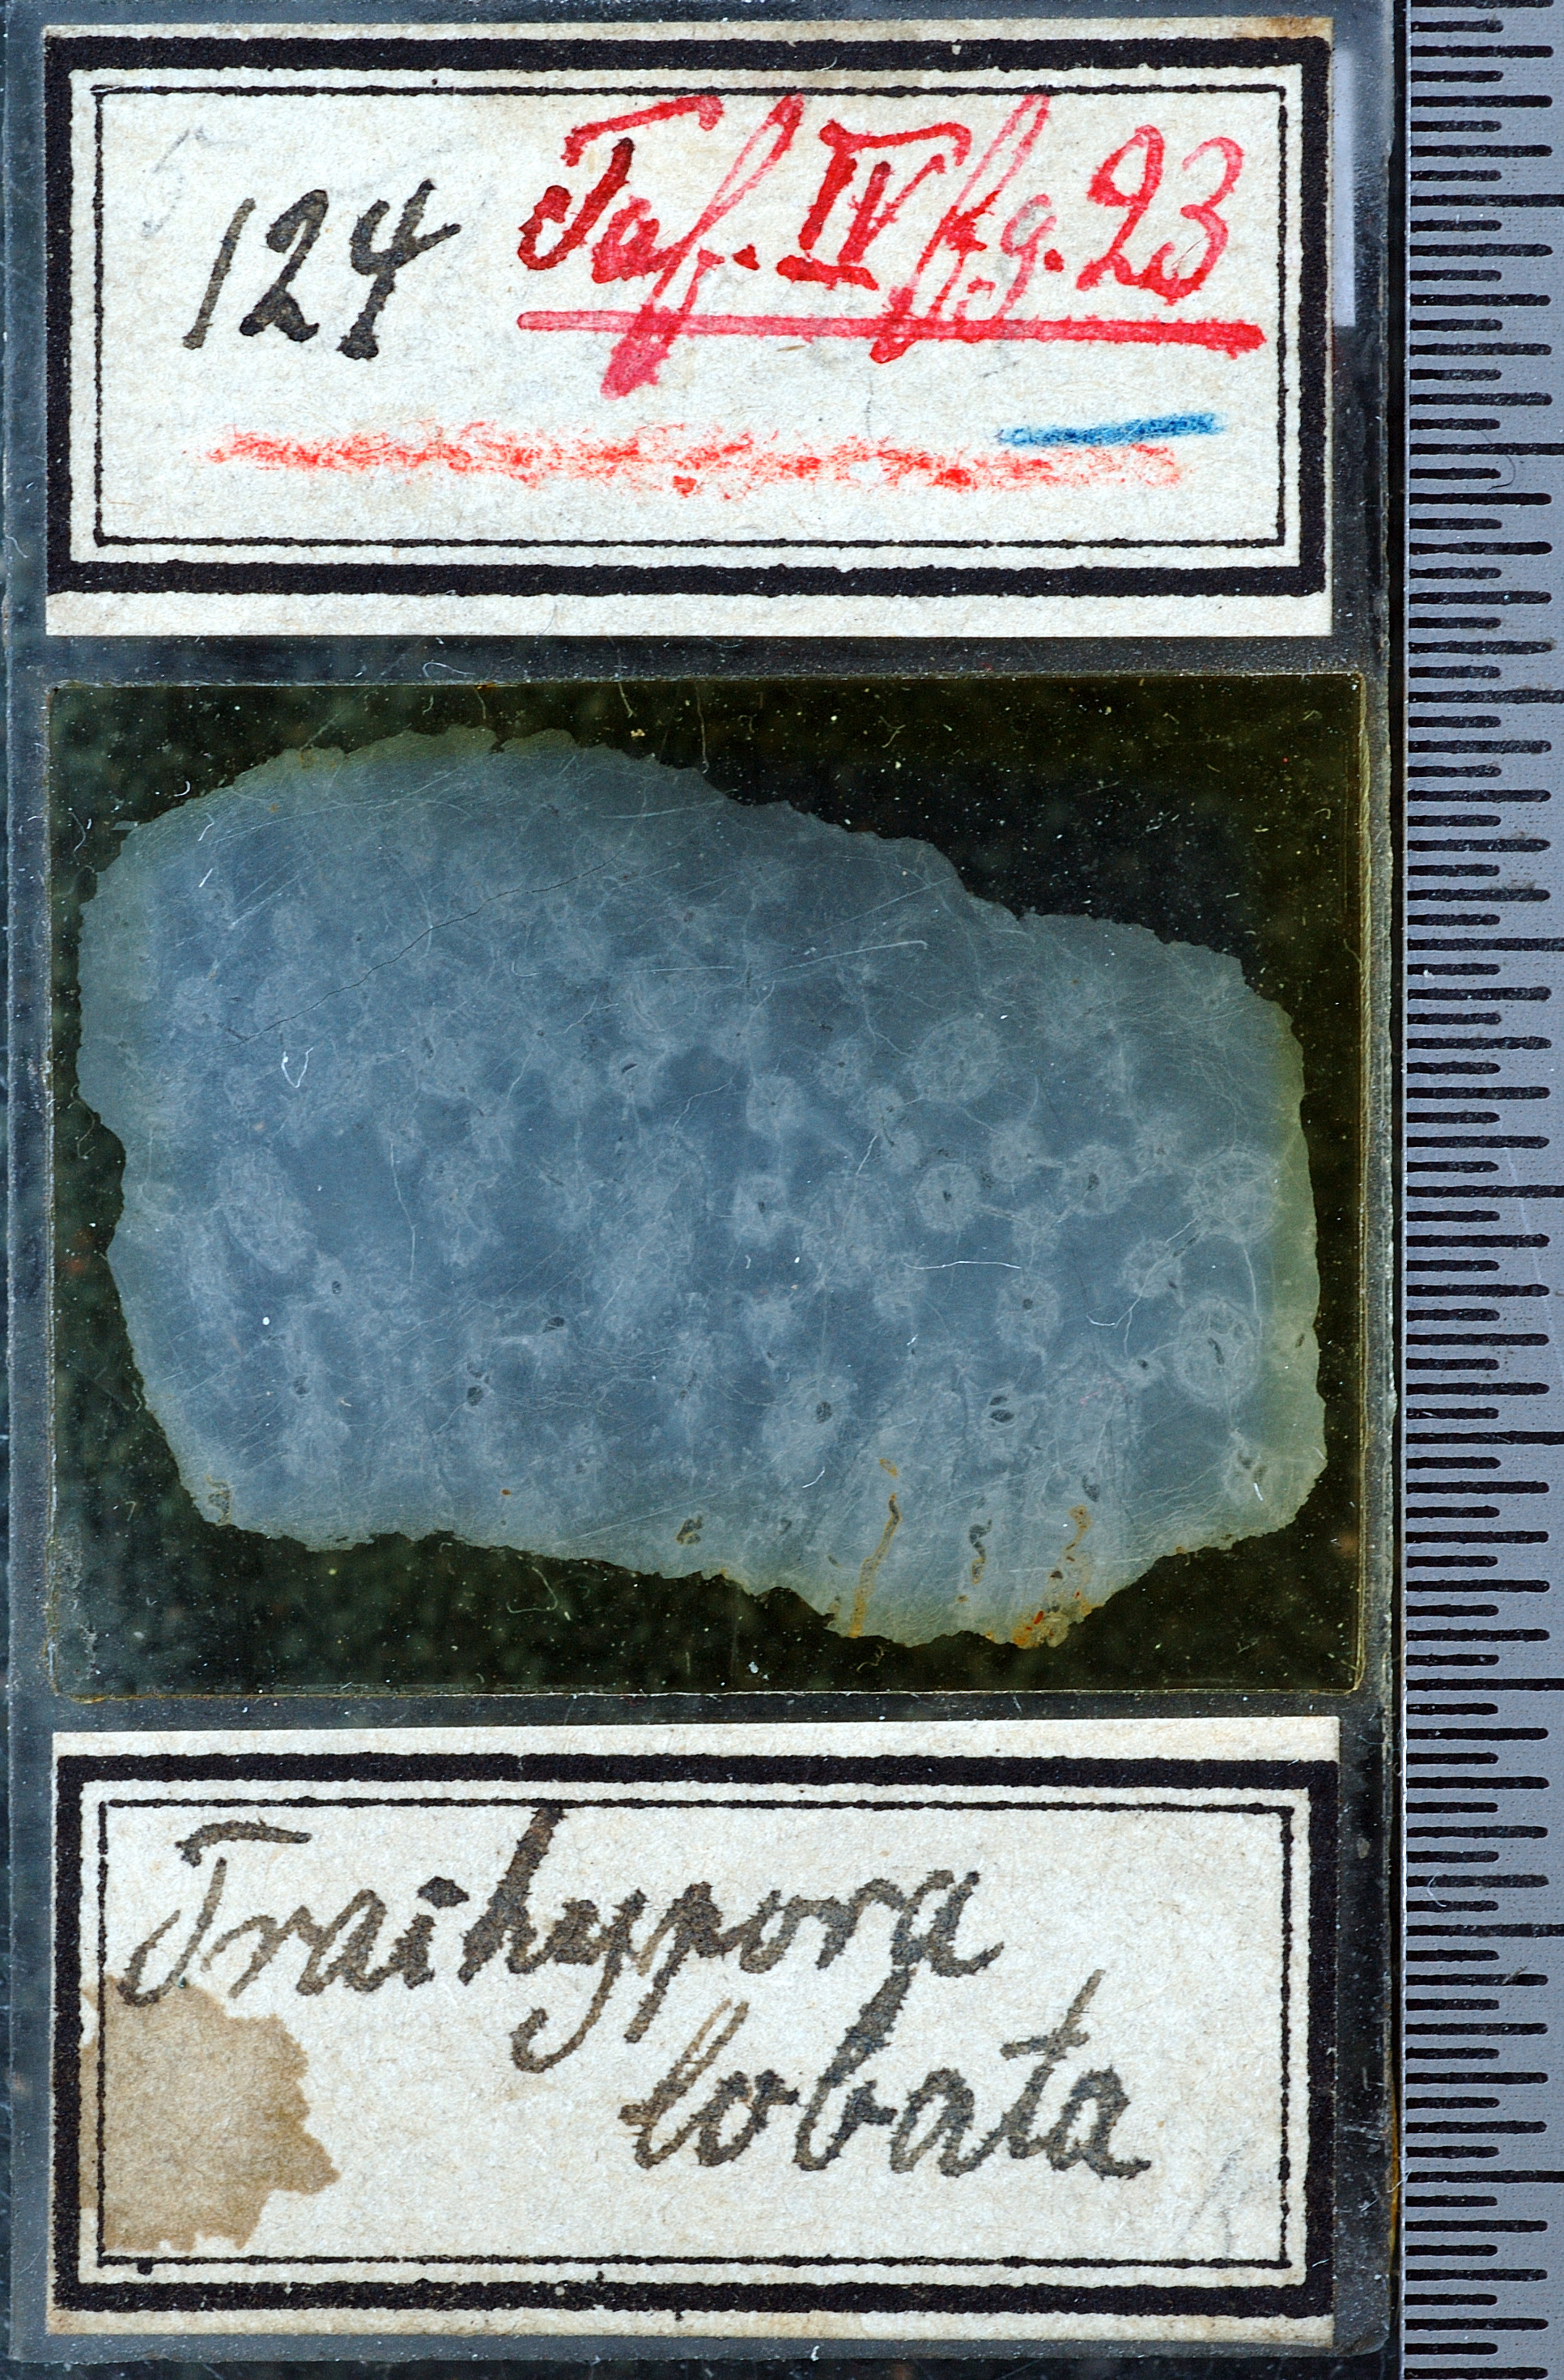 124 Taf. IV fig. 23
Trachypora
lobata